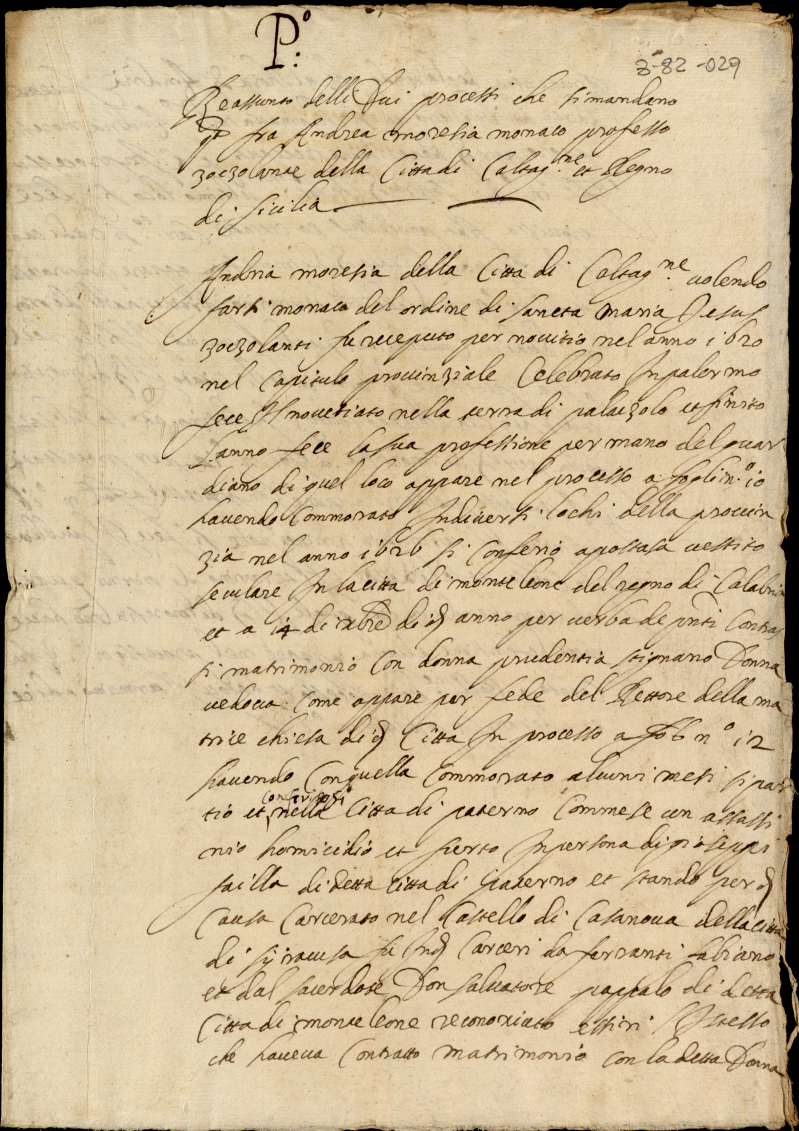 P.º
Z-82-029
Reassunto delli Dui processi che si mandano
fra Andrea moresia monaco professo
zoczolante della Citta di Caltag.ne et Regno
di Sicilia
Andria moresia della Citta di Caltag.ne volendo
farsi monaco del ordine di Santa maria Jesus
zoczolanti fu receputo per novitio nel anno 1620
nel Capitulo provinziale Celebrato In palermo
fece Il novetiato nella terra di palaczolo et finito
l anno fece la sua professione per mano del guar
diano di quel loco appare nel processo a fogli n.º 10
havendo Commorato In diversi lochi della provin
zia nel anno 1626 si conferio apostata vestito
seculare In la citta di monteleone del regno di Calabria
et a 14 di xbre di d anno per verba de pnti Contras
si matrimonio con donna prudentia stignano Donna
vedova come appare per fede del Rettore della ma
trice chiesa di d Citta In processo a fo 6 nº 12
havendo con quella commorato alcuni mesi si par
tio et conferitosi nella Citta di paterno Commese un assassi
nio homicidio et furto In persona di gioseppi
failla di detta citta di Paterno et stando per d
Causa Carcerato nel Castello di Casanova della citta
di siracusa fu In d Carceri da ferranti fabiano
et dal sacerdote Don Salvatore pappalo di detta
Citta di monteleone reconoxiuto essiri Istesso
che haveva Contratto matrimonio con la detta Donna